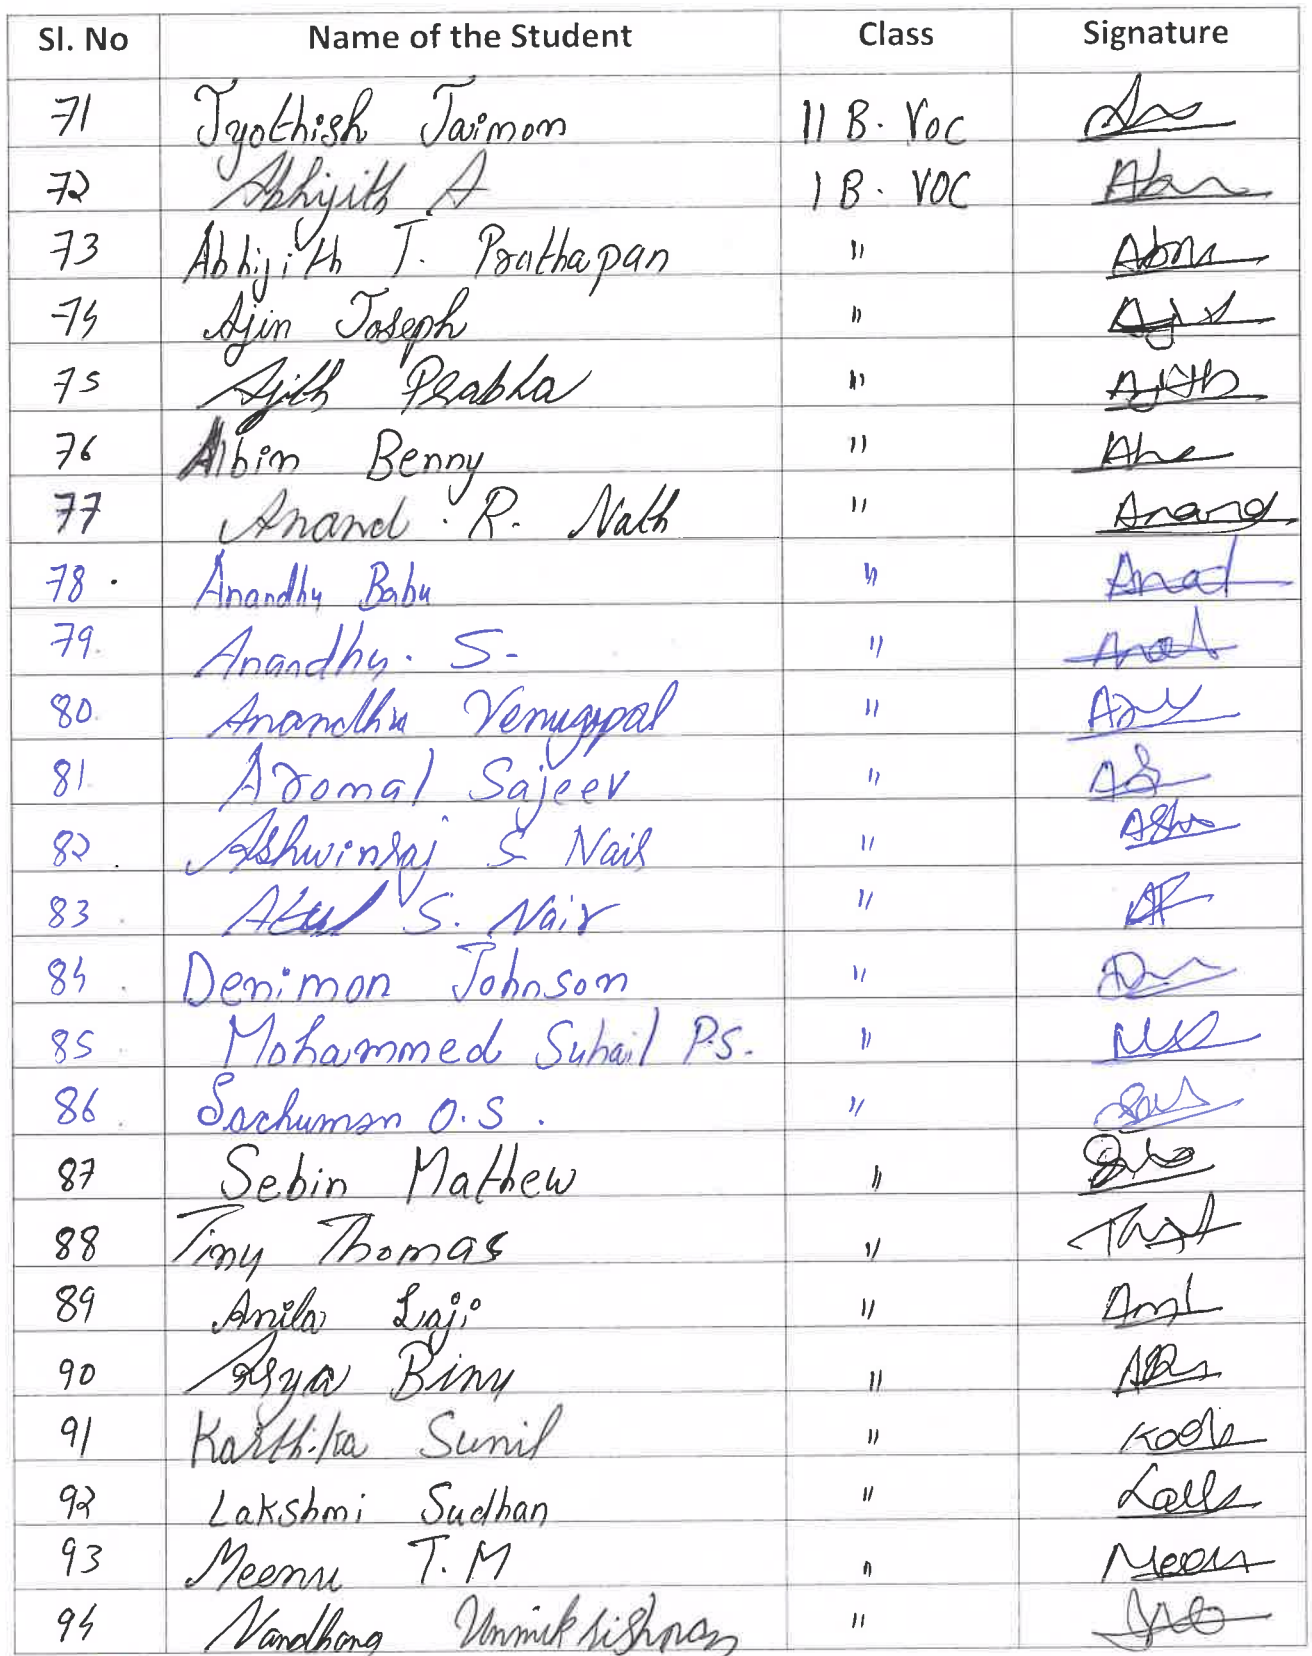 Sl. No Name of the Student Class Signature
71 Jyothish Jaimon II B. Voc
72 Abhijith A I B. VOC Abu
73 Abhijith T. Prathapan " Abhi
74 Ajin Joseph "
75 Ajith Prabha " Ajith
76 Albin Benny "
77 Anand . R. Nath " Anand
78 . Anandhu Babu " Anad
79. Anandhu. S. "
80. Anandhu Venugopal "
81 Aromal Sajeev "
82 . Ashwinraj S Nair "
83 . Atul S. Nair "
84 . Denimon Johnson "
85 . Mohammed Suhail P.S. "
86 . Sachumon O.S. "
87 Sebin Mathew "
88 Tiny Thomas "
89 Anila Laji "
90 Asya Binu "
91 Karthika Sunil "
92 Lakshmi Sudhan "
93 Meenu T. M " Meenu
94 Nandhana Unnikrishnan "